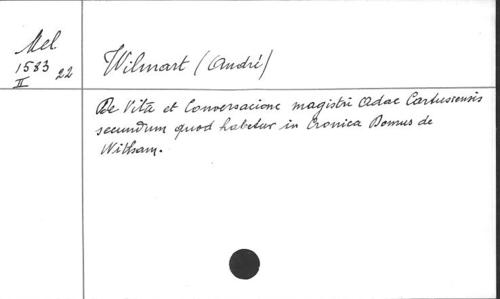 Mel
1583 22
II
Wilmart (André)
De Vita et Conversacione magistri Adae Cartusiensis
secundum quod habetur in Cronica Domus de
Witham.